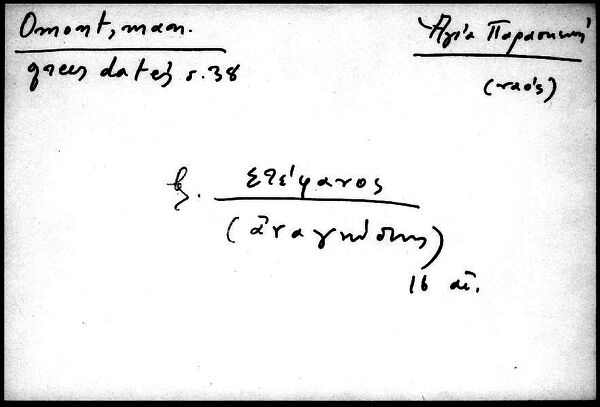 Omont, man.
grecs datés σ. 38
Ἁγία Παρασκευή
(ναός)
β. Στέφανος
(ἀναγνώστης)
16 αἰ.